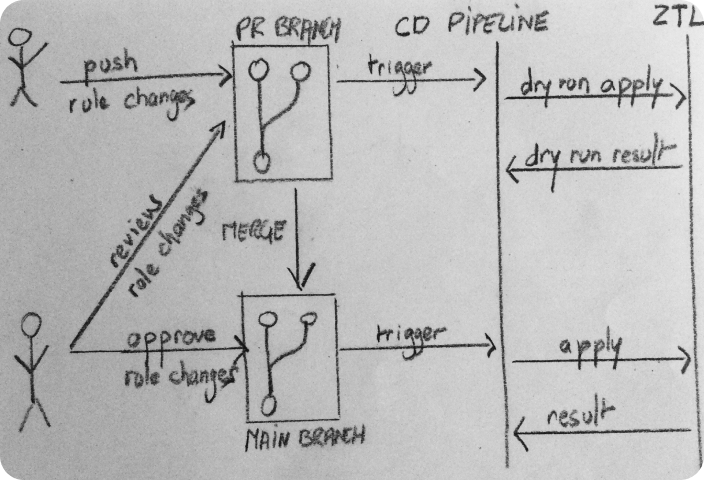 PR BRANCH
CD PIPELINE
ZTL
push
role changes
trigger
dry run apply
dry run result
reviews
role changes
MERGE
approve
role changes
trigger
apply
result
MAIN BRANCH